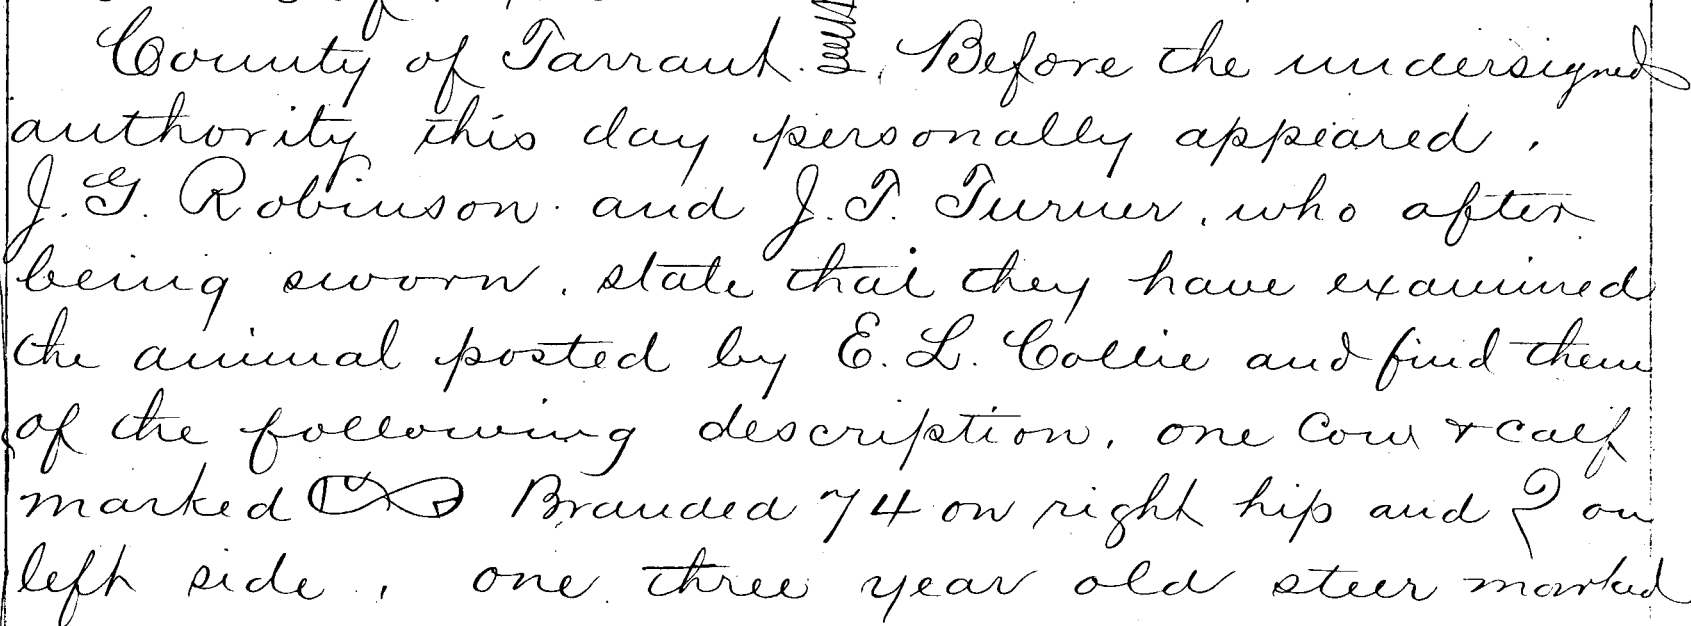 County of Tarrant. Before the undersigned
authority this day personally appeared,
J. G. Robinson and J. T. Turner, who after
being sworn, state that they have examined
the animal posted by E. L. Collie and find them
of the following description, one Cow & calf
marked Branded 74 on right hip and 2 on
left side, one three year old steer marked